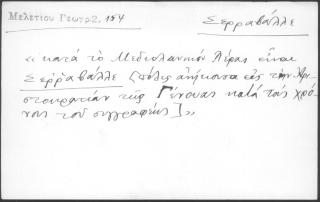 Μελετίου Γεωγρ2, 154
Σερραβάλλε
« κατὰ τὸ Μεδιολανικὸν Πέρας εἶναι
Σερραβάλλε (πόλις ἀνήκουσα εἰς τὴν Ἀρι-
στοκρατίαν τῆς Γένουας κατὰ τοὺς χρό-
νους τοῦ συγγραφέως] »